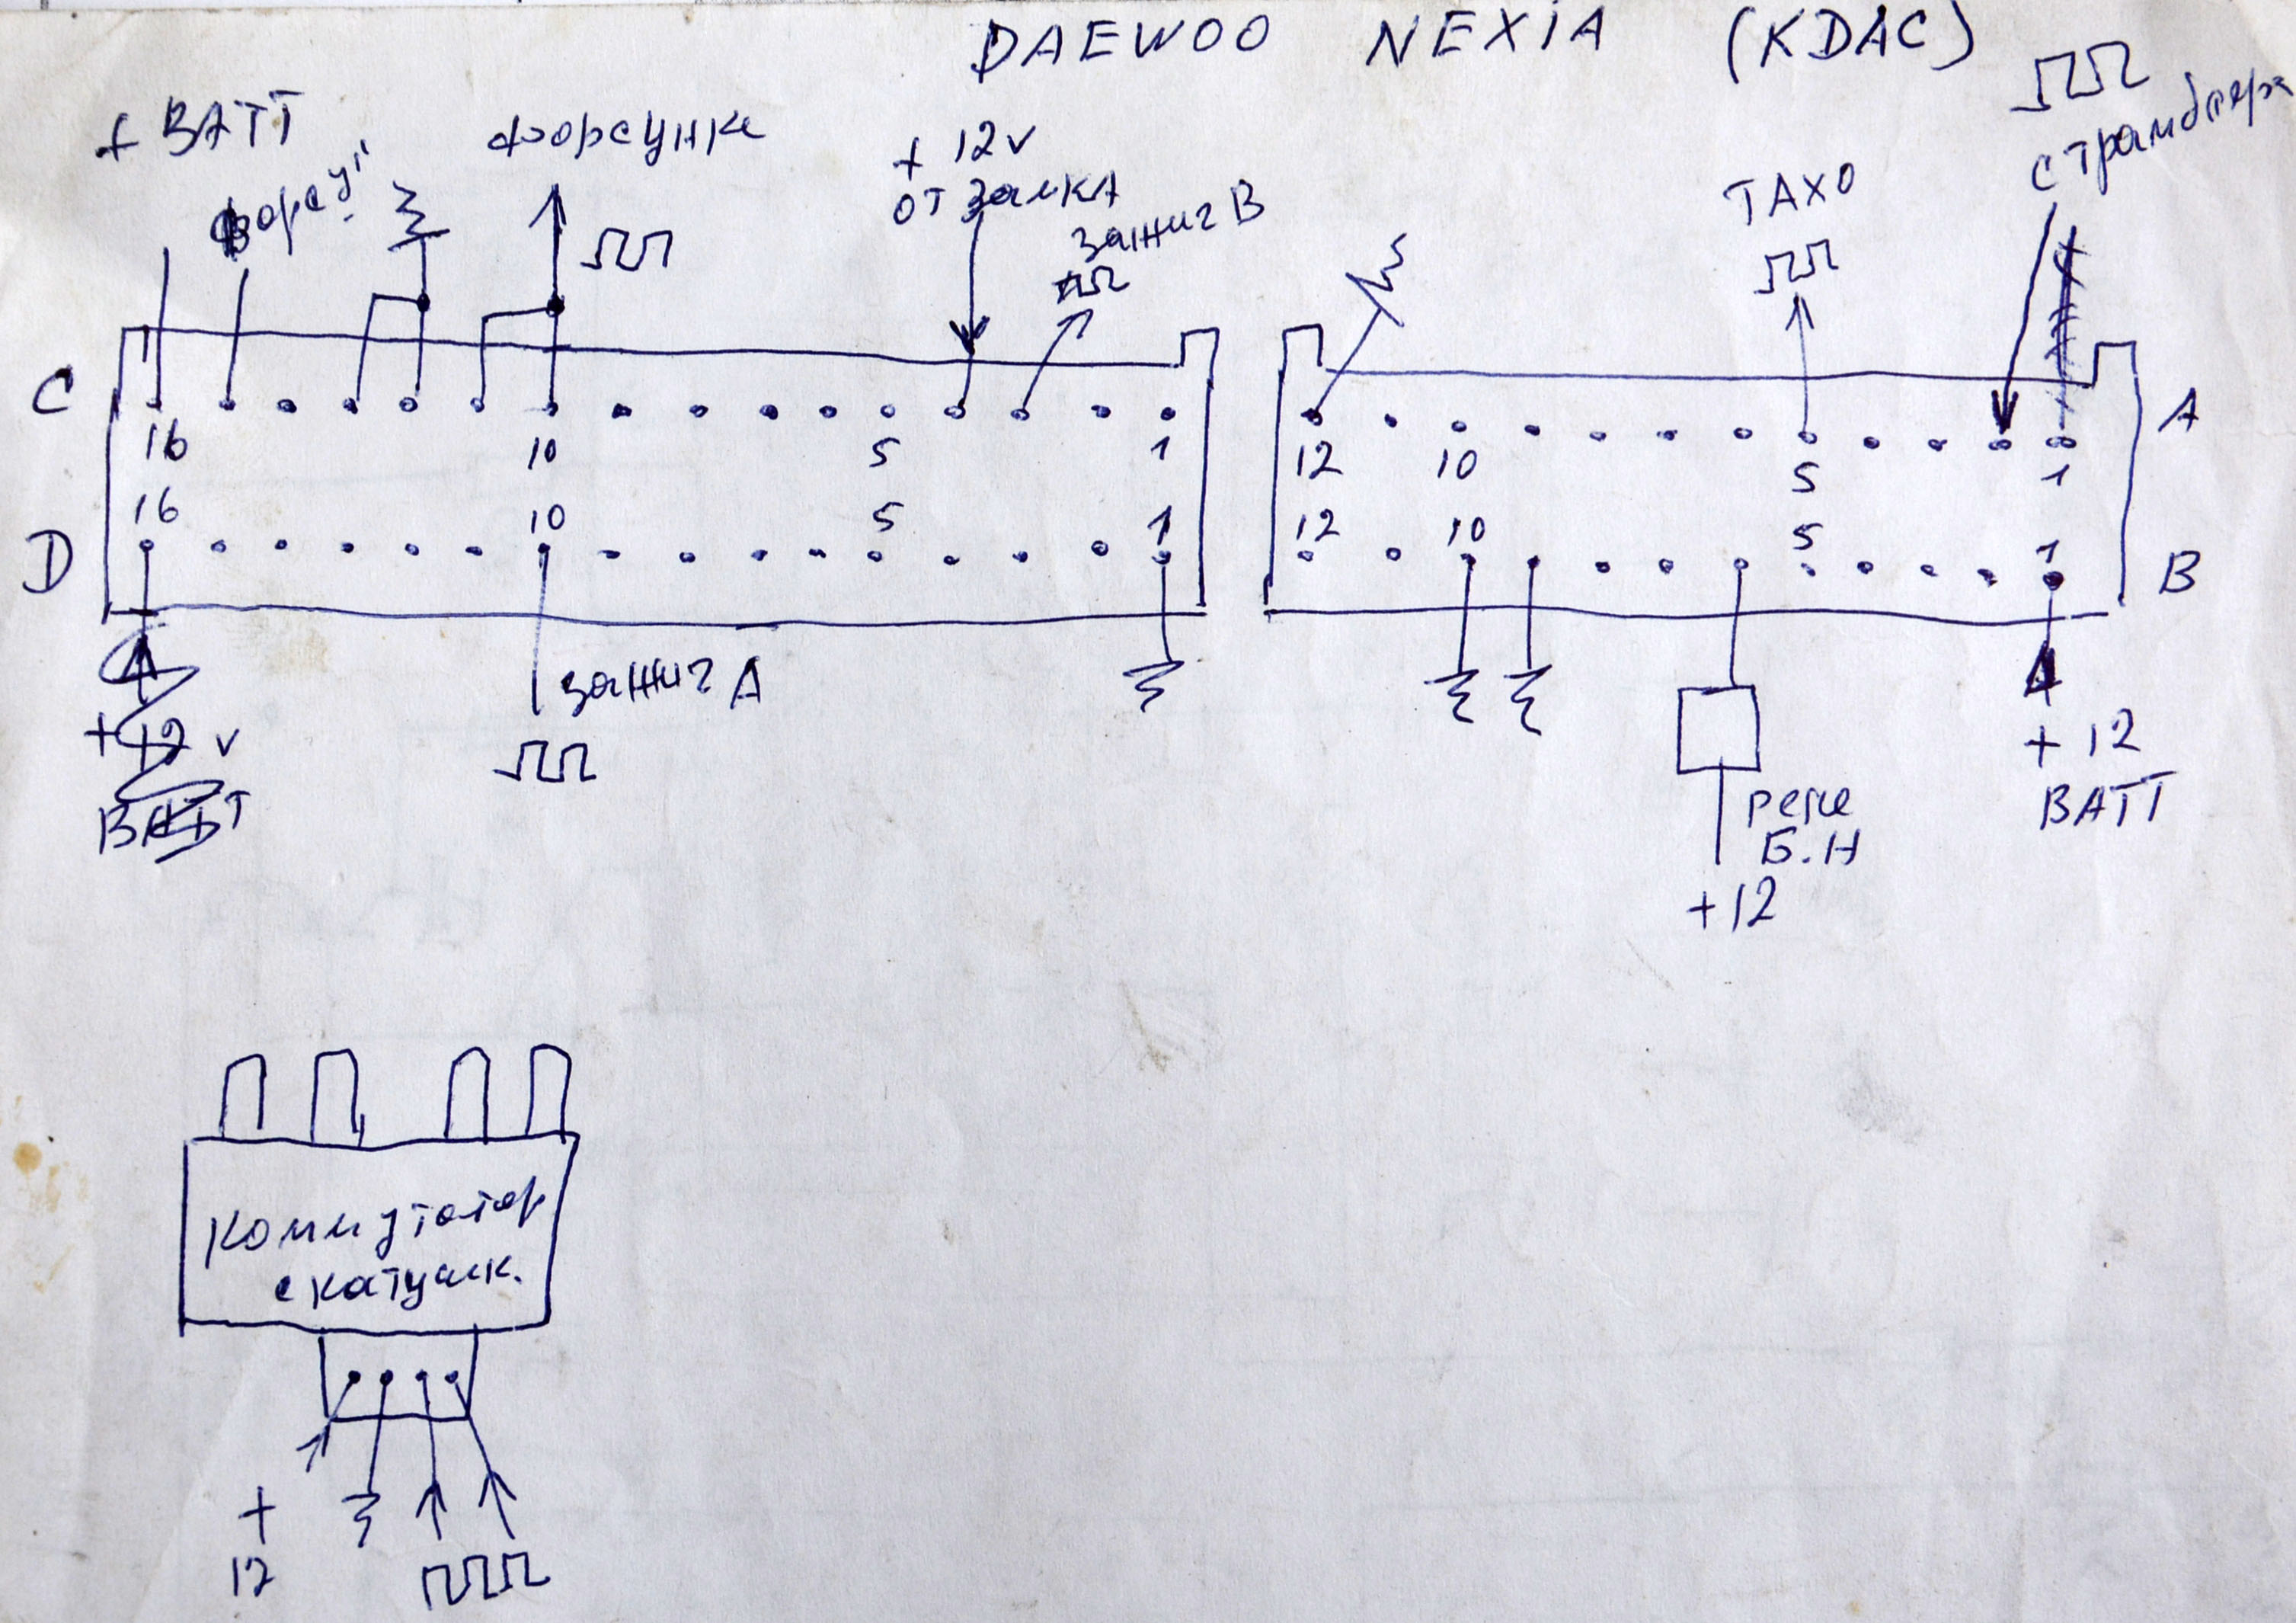 DAEWOO NEXIA (KDAC)
+ BATT
форсун
форсунке
+ 12v
от замка
зажиг B
ТАХО
с трамблера
C
16 10 5 1
12 10 5 1
A
D
16 10 5 1
12 10 5 1
B
+ 12 v
BATT
зажиг A
реле
Б.Н
+12
+ 12
BATT
Коммутатор
с катушк.
+
12